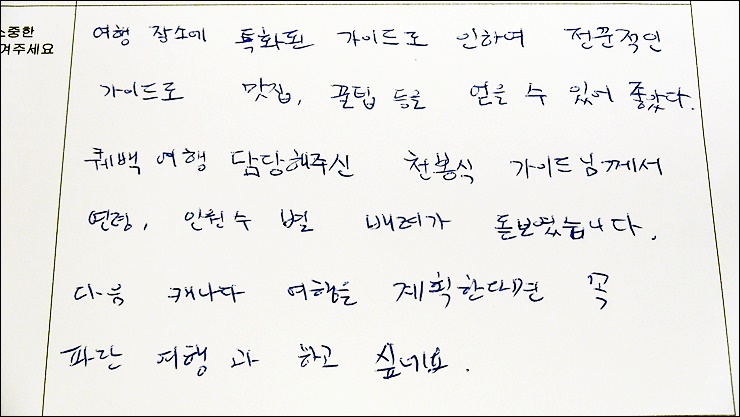 소중한
겨주세요
여행 장소에 특화된 가이드로 인하여 전문적인
가이드로 맛집, 꿀팁 등을 얻을 수 있어 좋았다.
퀘백 여행 담당해주신 천봉식 가이드님께서
연령, 인원수 별 배려가 돋보였습니다.
다음 캐나다 여행을 계획한다면 꼭
파란 여행과 하고 싶네요.